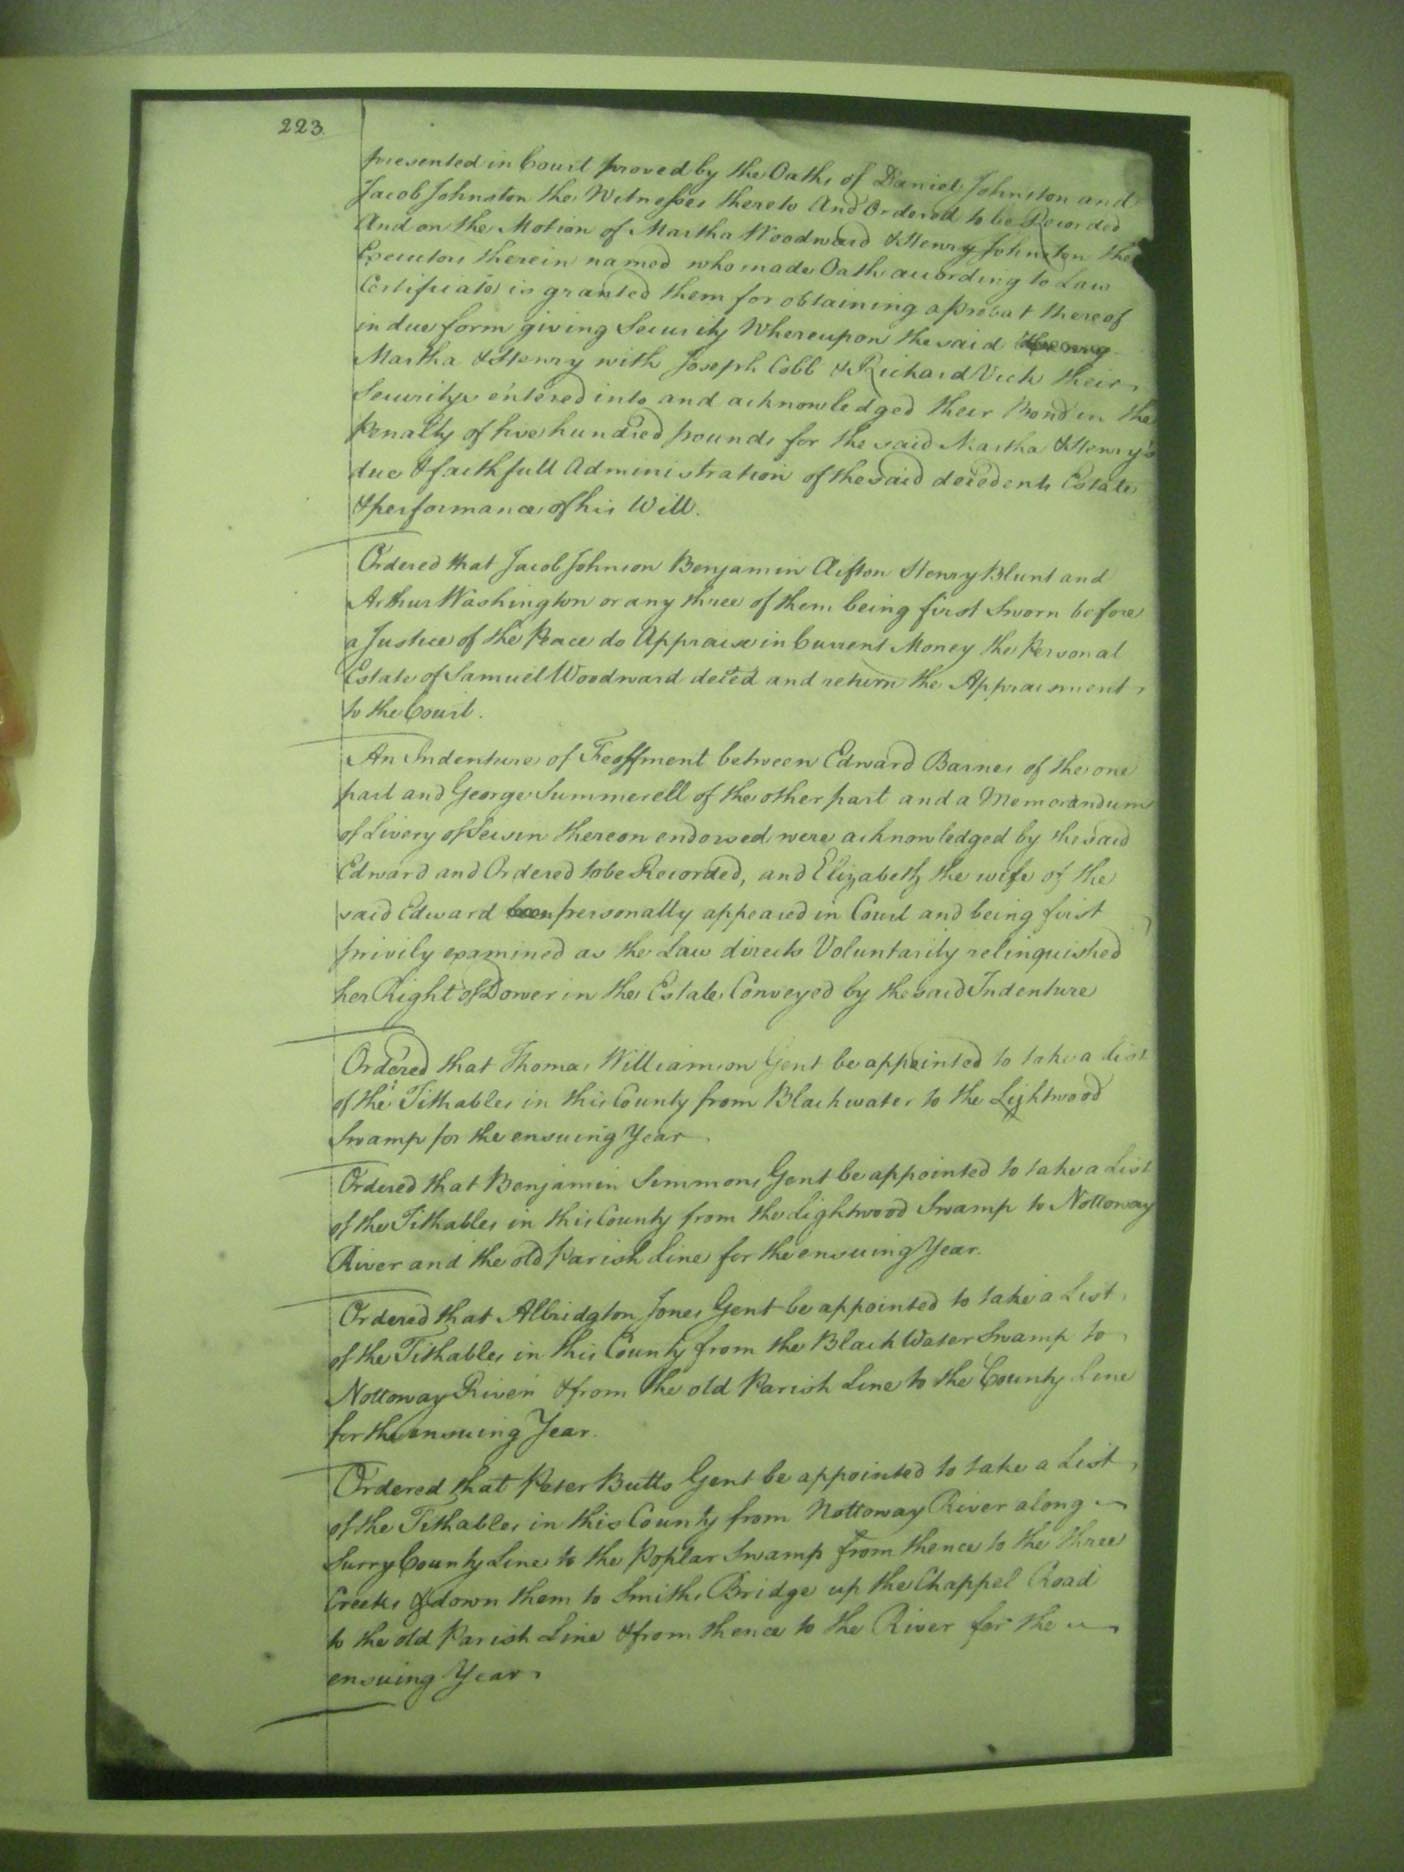 223.
presented in Court proved by the Oaths of Daniel Johnston and
Jacob Johnston the Witnesses thereto And Ordered to be Recorded
And on the Motion of Martha Woodward & Henry Johnston the
Executors therein named who made Oath according to Law
Certificate is granted them for obtaining a probat thereof
in due form giving Security Whereupon the said
Martha & Henry with Joseph Cobb & Richard Vick their
Securitys entered into and acknowledged their Bond in the
Penalty of five hundred pounds for the said Martha & Henry's
due & faithfull Administration of the said decedents Estate
& performance of his Will.
Ordered that Jacob Johnson Benjamin Clifton Henry Blunt and
Arthur Washington or any three of them being first Sworn before
a Justice of the Peace do Appraise in Current Money the Personal
Estate of Samuel Woodward deced and return the Appraisment
to the Court.
An Indenture of Feoffment between Edward Barnes of the one
part and George Summerell of the other part and a Memorandum
of Livery of Seisin thereon endorsed were acknowledged by the said
Edward and Ordered to be Recorded, and Elizabeth the wife of the
said Edward personally appeared in Court and being first
privily examined as the Law directs Voluntarily relinquished
her Right of Dower in the Estate Conveyed by the said Indenture
Ordered that Thomas Williamson Gent be appointed to take a List
of the Tithables in this County from Blackwater to the Lightwood
Swamp for the ensuing Year
Ordered that Benjamin Simmons Gent be appointed to take a List
of the Tithables in this County from the Lightwood Swamp to Nottoway
River and the old Parish Line for the ensuing Year.
Ordered that Albridgton Jones Gent be appointed to take a List
of the Tithables in this County from the Black Water Swamp to
Nottoway River & from the old Parish Line to the County Line
for the ensuing Year.
Ordered that Peter Butts Gent be appointed to take a List
of the Tithables in this County from Nottoway River along
Surry County Line to the Poplar Swamp from thence to the three
Creeks & down them to Smiths Bridge up the Chappel Road
to the old Parish Line & from thence to the River for the
ensuing Year